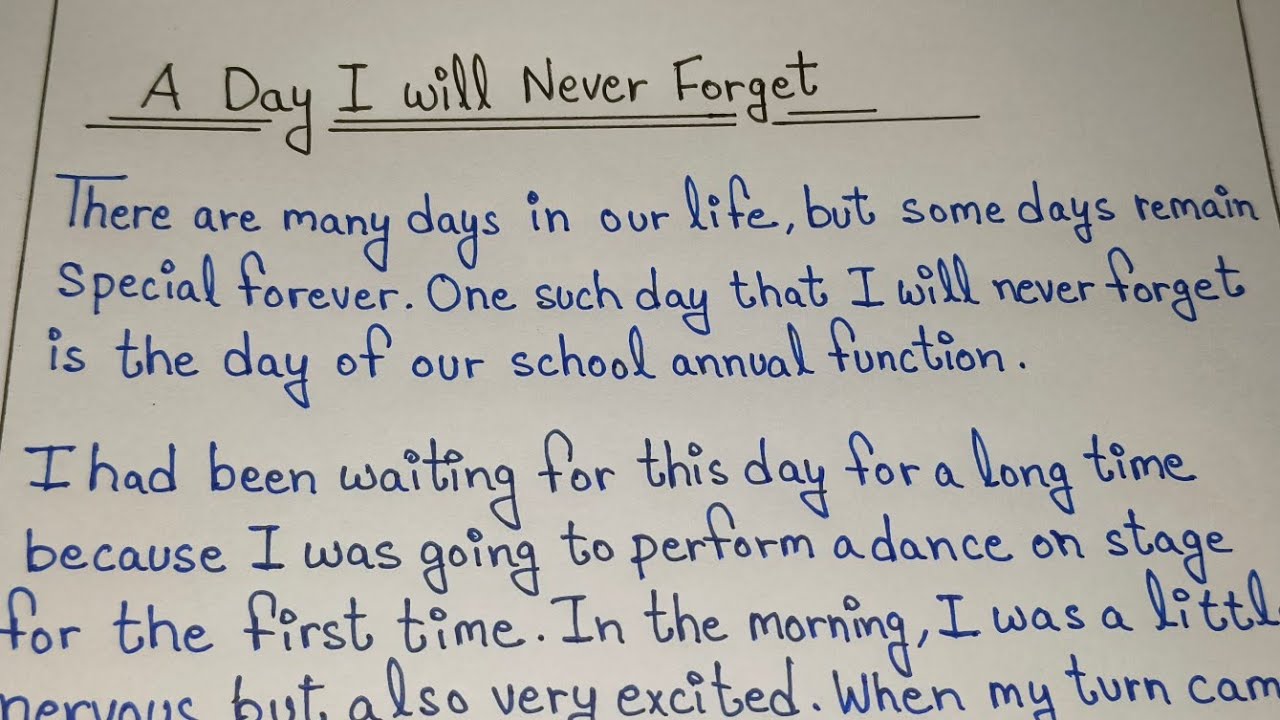 A Day I will Never Forget
There are many days in our life, but some days remain
special forever. One such day that I will never forget
is the day of our school annual function.
I had been waiting for this day for a long time
because I was going to perform a dance on stage
for the first time. In the morning, I was a littl
nervous but also very excited. When my turn cam